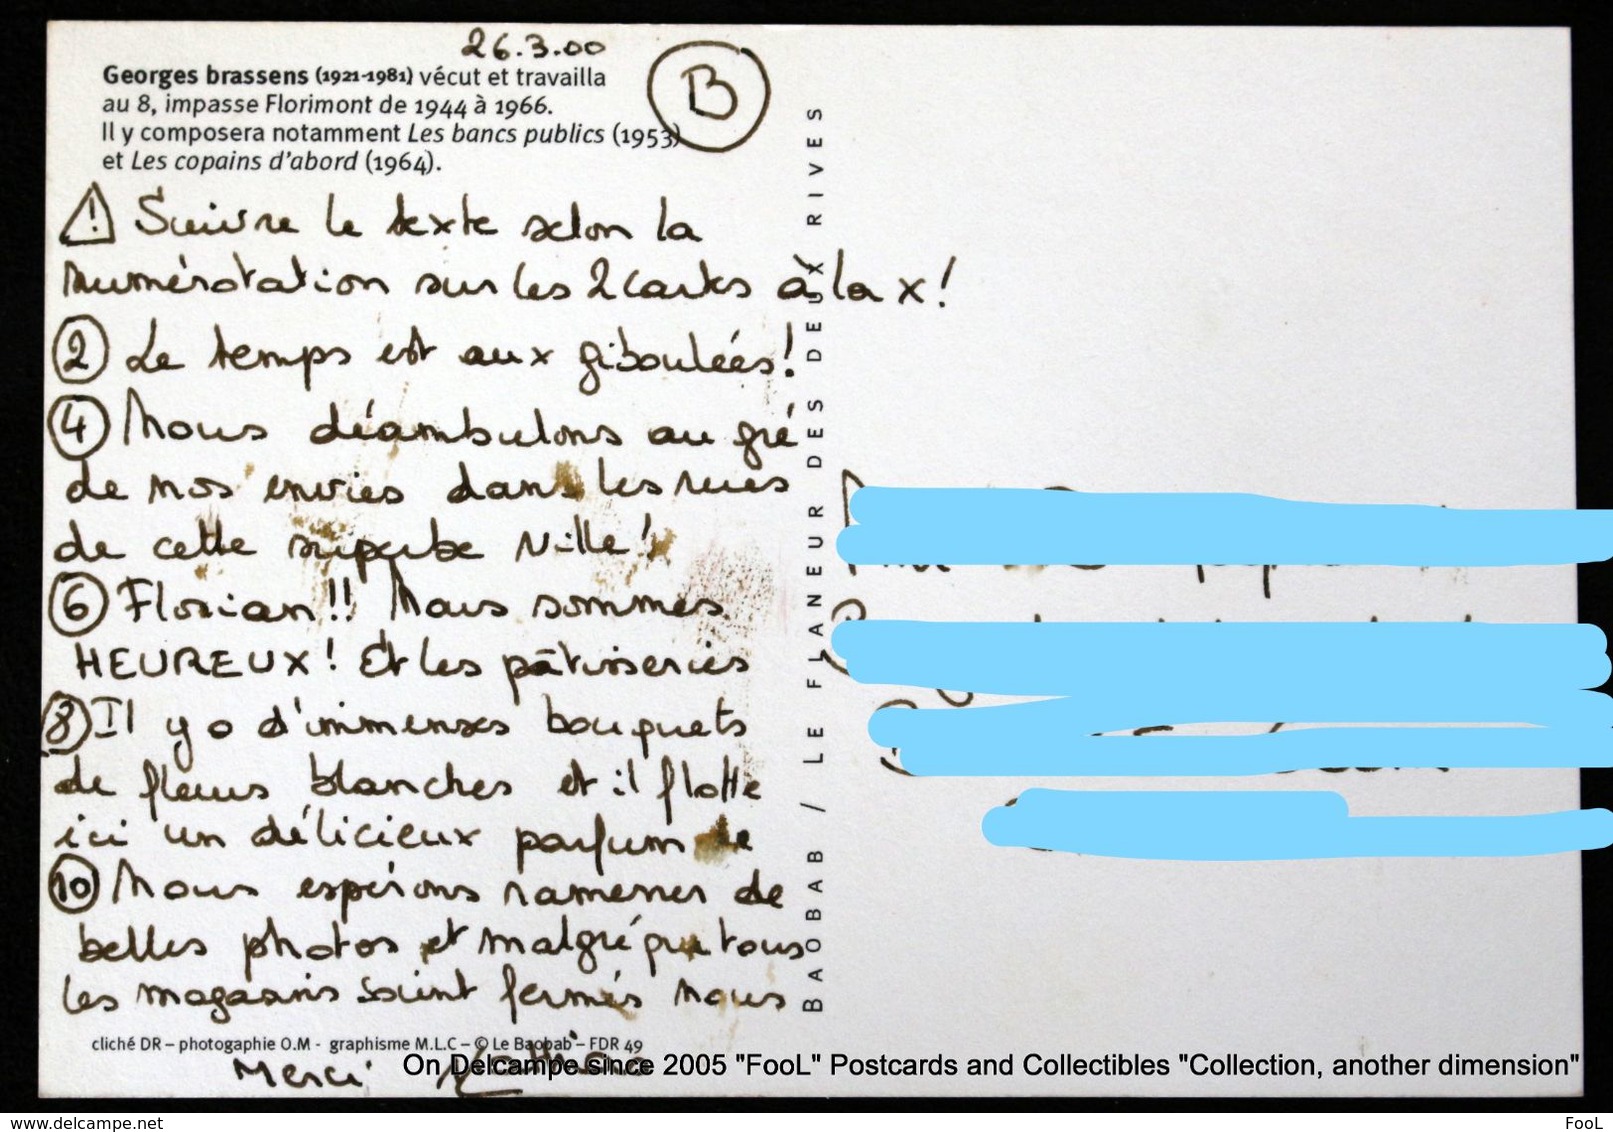 26.3.00
B
Georges brassens (1921-1981) vécut et travailla
au 8, impasse Florimont de 1944 à 1966.
Il y composera notamment Les bancs publics (1953)
et Les copains d'abord (1964).
⚠ Suivre le texte selon la
numérotation sur les 2 cartes à la x !
② Le temps est aux giboulées !
④ Nous déambulons au gré
de nos envies dans les rues
de cette superbe ville !
⑥ Florian !! Nous sommes
HEUREUX ! Et les pâtisseries
⑧ Il y a d'immenses bouquets
de fleurs blanches et il flotte
ici un délicieux parfum de
⑩ Nous espérons ramener de
belles photos et malgré que tous
les magasins soient fermés nous
Merci
cliché DR – photogaphie O.M - graphisme M.L.C – © Le Baobab – FDR 49
BAOBAB / LE FLANEUR DES DEUX RIVES
On Delcampe since 2005 "FooL" Postcards and Collectibles "Collection, another dimension"
www.delcampe.net
FooL